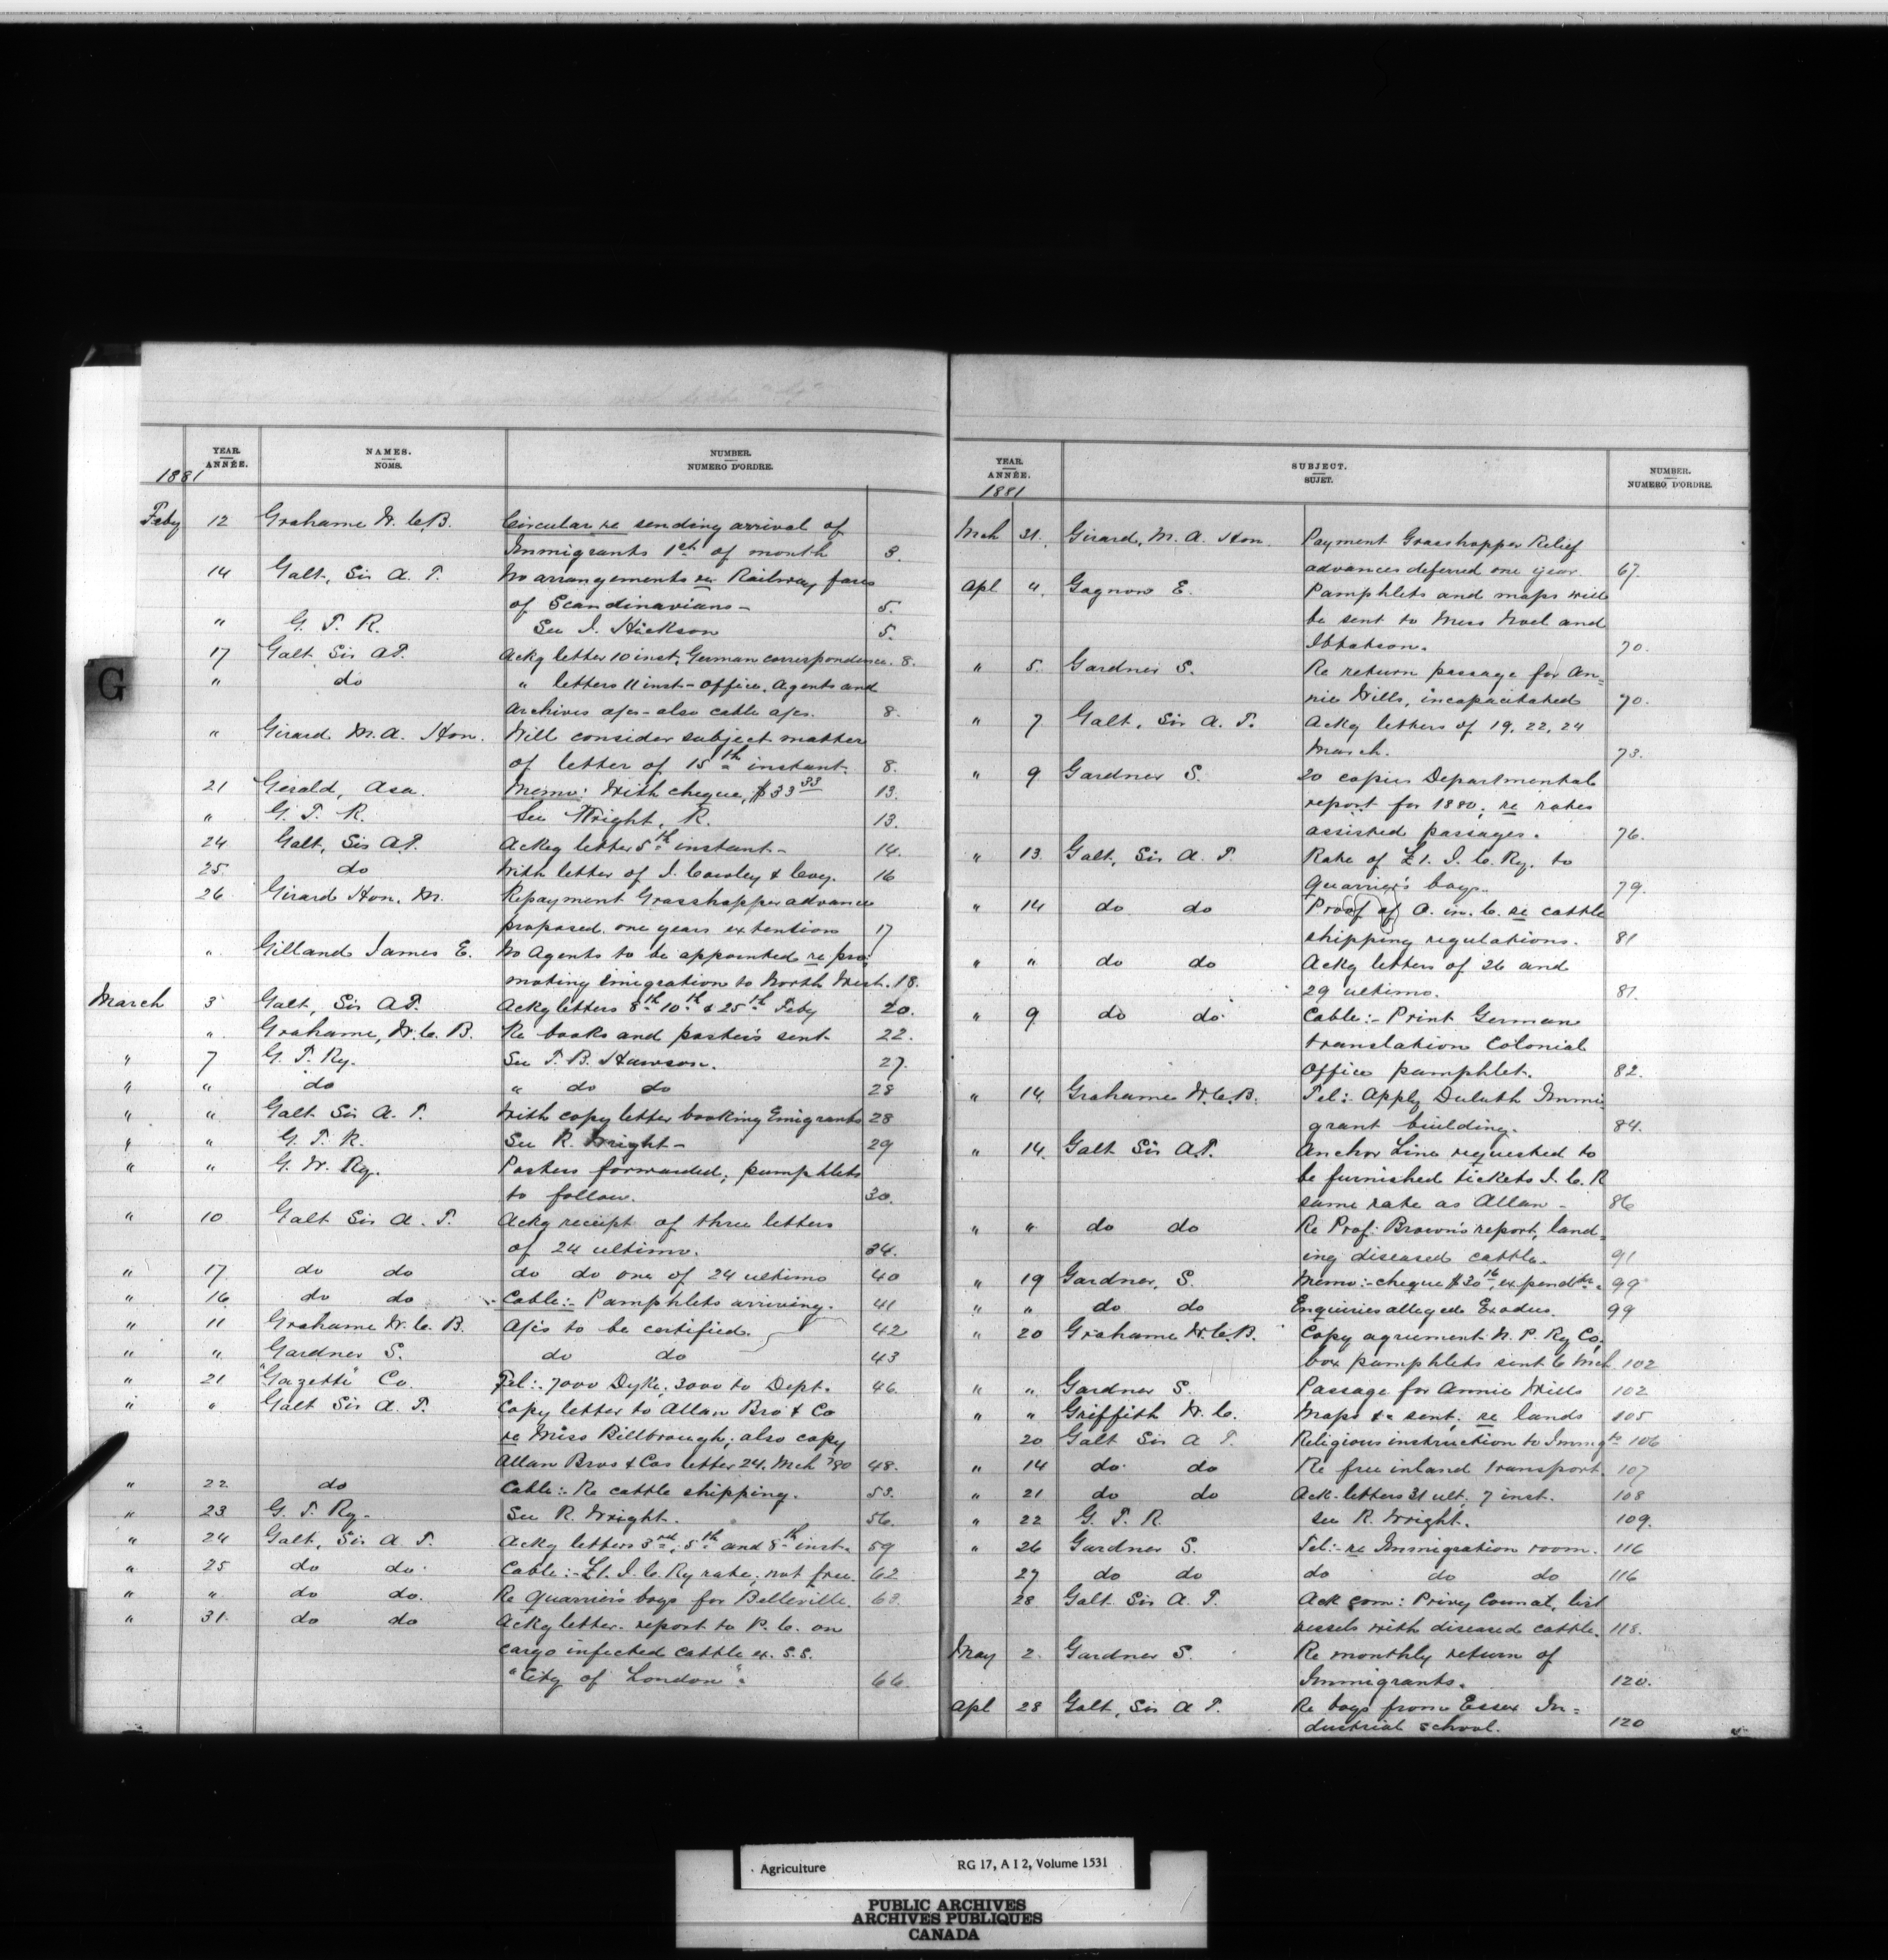 YEAR. NAMES. NUMBER.
ANNÉE. NOMS. NUMERO D'ORDRE.
1881
Feby 12 Grahame W. C. B. Circular re sending arrival of
Immigrants 1st of month 3.
14 Galt, Sir A. T. No arrangements re Railway fares
of Scandinavians - 5.
" G. T. R. See J. Hickson 5.
17 Galt Sir A.T. Ackg letter 10 inst, German correspondence. 8.
" do " letters 11 inst - Office, Agents and
Archives a/cs - also cable a/cs. 8.
" Girard M. A. Hon. Will consider subject matter
of letter of 15th instant. 8.
21 Gerald, Asa. Memo: With cheque, $33 33 13.
" G. T. R. See Wright, R. 13.
24 Galt, Sir A.T. Ackg letter 5th instant - 14.
25. do With letter of J. Cowley & Coy. 16
26 Girard Hon. M. Repayment Grasshopper advance
proposed, one years extention 17
" Gilland James E. No Agents to be appointed re pro-
moting Emigration to North West. 18.
March 3 Galt, Sir A.T. Ackg letters 8th 10th & 25th Feby 20.
" Grahame, W. C. B. Re books and posters sent 22.
" 7 G. T. Ry. See T. B. Hawson. 27.
" " do " do do 28
" " Galt Sir A. T. With copy letter booking Emigrants 28
" " G. T. R. See R. Wright - 29
" " G. W. Ry. Posters forwarded; pamphlets
to follow. 30.
" 10 Galt Sir A. T. Ackg receipt of three letters
of 24 ultimo. 34.
" 17 do do do do one of 24 ultimo 40
" 16 do do Cable:- Pamphlets arriving. 41
" 11 Grahame W. C. B. A/cs to be certified. 42
" " Gardner S. do do 43
" 21 "Gazette" Co. Tel:. 7000 Dyke; 3000 to Dept. 46.
" " Galt Sir A. T. Copy letter to Allan Bro & Co
re Miss Billbrough; also copy
Allan Bros & Cos letter 24. Mch '80 48.
" 22 do Cable:- Re cattle shipping. 53.
" 23 G. T. Ry - See R. Wright. 56.
" 24 Galt, Sir A. T. Ackg letters 3rd, 5th and 8th inst. 59
" 25 do do Cable:- £1. I. C. Ry rate, not free. 62
" " do do. Re Quarrier's boys for Belleville. 63.
" 31. do do Ackg letter. report to P. C. on
cargo infected cattle ex. S.S.
"City of London". 66.
YEAR. SUBJECT. NUMBER.
ANNÉE. SUJET. NUMERO D'ORDRE.
1881
Mch 31. Girard, M. A. Hon. Payment Grasshopper Relief
advances deferred one year. 67.
Apl 4. Gagnon E. Pamphlets and maps will
be sent to Mess Noel and
Ibbotson. 70.
" 5. Gardner S. Re return passage for An=
nie Wills, incapacitated 70.
" 7 Galt, Sir A. T. Ackg letters of 19, 22, 24
March. 73.
" 9 Gardner S. 20 copies Departmental
report for 1880; re rates
assisted passages. 76.
" 13 Galt, Sir A. T. Rate of £1. I. C. Ry. to
Quarrier's boys. 79.
" 14 do do Proof of O. in C. re cattle
shipping regulations. 81
" " do do Ackg letters of 26 and
29 ultimo. 81.
" 9 do do Cable:- Print German
translation Colonial
Office pamphlet. 82.
" 14 Grahame W. C. B. Tel:. Apply Duluth Immi
grant building. 84.
" 14 Galt Sir A.T. Anchor Line requested to
be furnished tickets I. C. R
same rate as Allan - 86
" " do do Re Prof: Brown's report, land=
ing diseased cattle. 91
" 19 Gardner, S. Memo:- cheque $30 16, expendtre. 99
" " do do Enquiries alleged Exodus. 99
" 20 Grahame W. C. B. Copy agreement N. P. Ry Co;
box pamphlets sent 6 Mch. 102
" " Gardner S. Passage for Annie Wills 102
" " Griffith W. C. Maps &c sent; re lands 105
20 Galt Sir A T. Religious instruction to Immgts 106
" 14 do do Re free inland transport. 107
" 21 do do Ack. letters 31 ult, 7 inst. 108
" 22 G. T. R See R. Wright. 109.
" 26 Gardner S. Tel:- re Immigration room. 116
27 do do do do do 116
28 Galt Sir A. T. Ack com: Privy Council, list
vessels with diseased cattle. 118.
May 2. Gardner S. Re monthly return of
Immigrants. 120.
Apl 28 Galt, Sir A T. Re boys from Essex In=
dustrial School. 120
G
Agriculture RG 17, A I 2, Volume 1531
PUBLIC ARCHIVES
ARCHIVES PUBLIQUES
CANADA